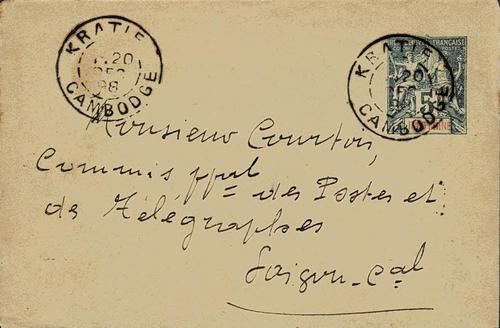 KRATIE
20
DEC
98
CAMBODGE
KRATIE
20
DEC
CAMBODGE
FRANÇAISE
POSTES
5
Monsieur Courtois,
Commis ppal des Postes et
de Télégraphes
Saigon-Cal